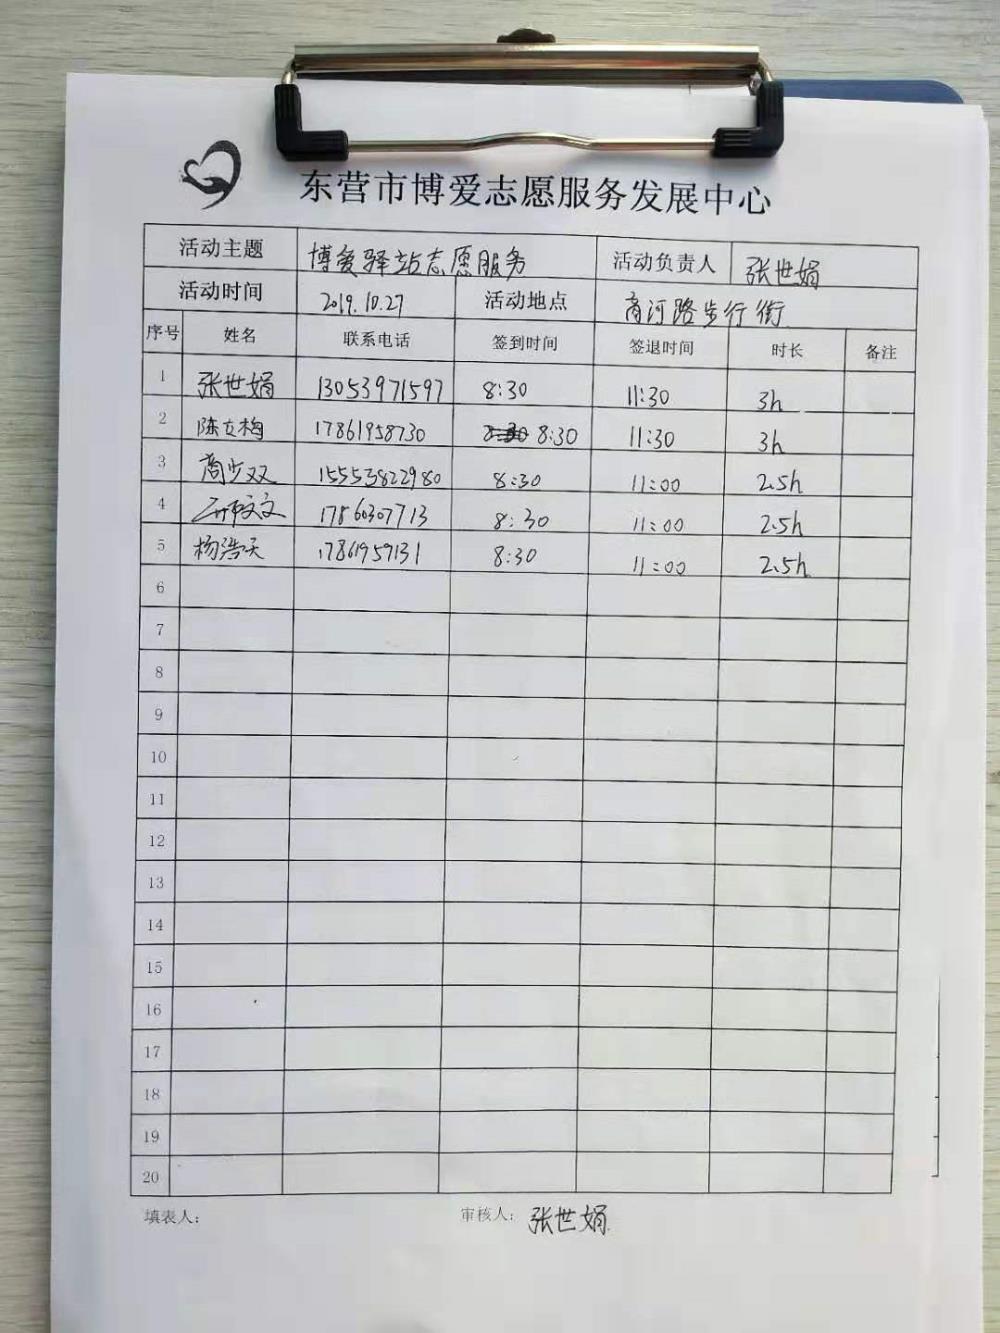 东营市博爱志愿服务发展中心
活动主题 博爱驿站志愿服务 活动负责人 张世娟
活动时间 2019.10.27 活动地点 商河路步行街
序号 姓名 联系电话 签到时间 签退时间 时长 备注
1 张世娟 13053971597 8:30 11:30 3h
2 陈立梅 17861958730 8:30 8:30 11:30 3h
3 商少双 15553822980 8:30 11:00 2.5h
4 17860307713 8:30 11:00 2.5h
5 杨浩天 17861959131 8:30 11:00 2.5h
6
7
8
9
10
11
12
13
14
15
16
17
18
19
20
填表人: 审核人: 张世娟